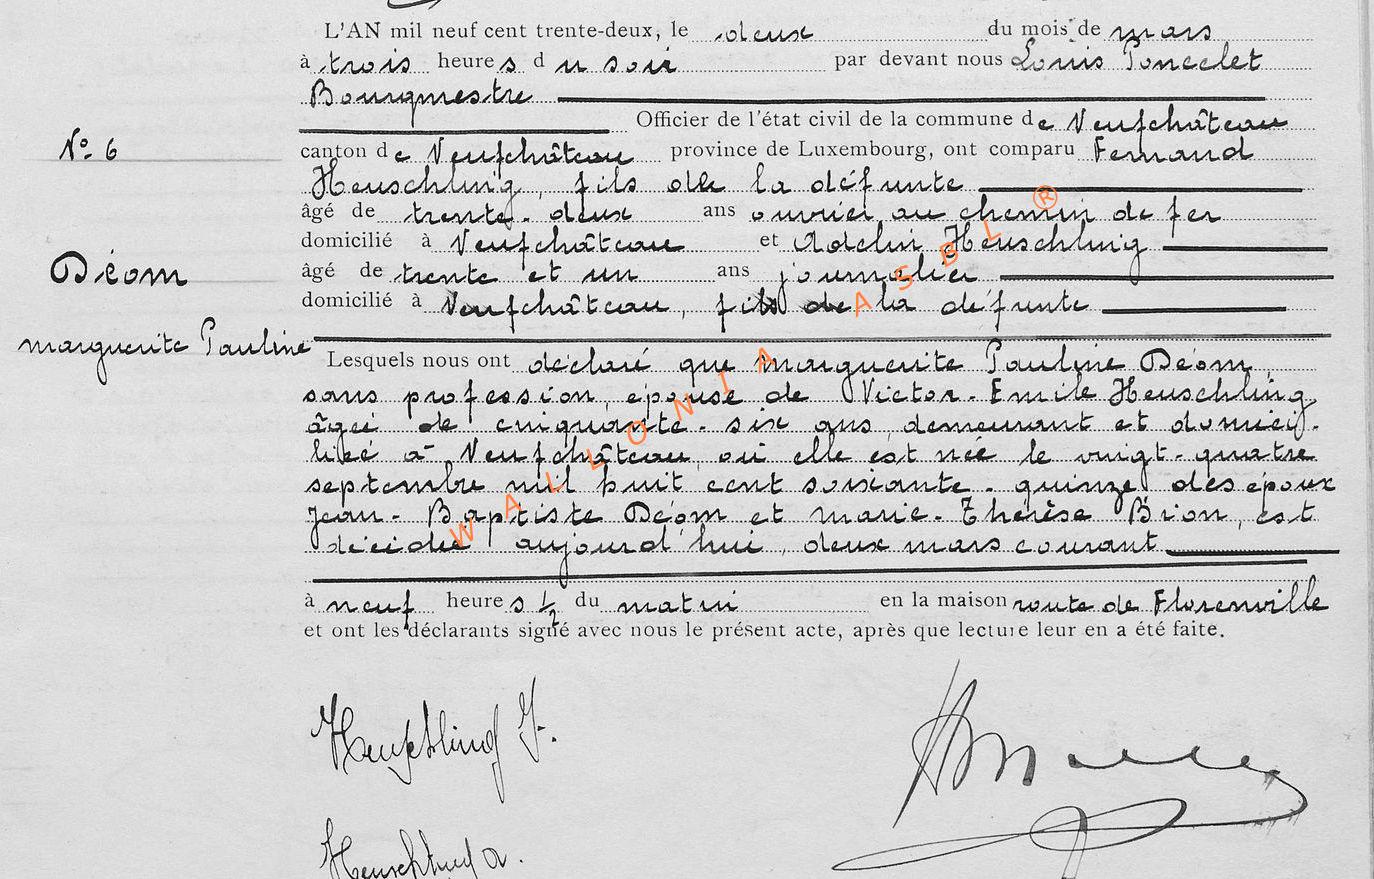 L'AN mil neuf cent trente-deux, le deux du mois de mars
à trois heures du soir par devant nous Louis Poncelet
Bourgmestre
Officier de l'état civil de la commune de Neufchâteau
No 6
canton de Neufchâteau province de Luxembourg, ont comparu Fernand
Heuschling, fils de la défunte
âgé de trente-deux ans ouvrier au chemin de fer
domicilié à Neufchâteau et Adelin Heuschling
Déom
âgé de trente et un ans journalier
domicilié à Neufchâteau, fils de la défunte
marguerite Pauline
Lesquels nous ont déclaré que marguerite Pauline Déom,
sans profession, épouse de Victor-Emile Heuschling
âgée de cinquante-six ans, demeurant et domici-
liée à Neufchâteau, où elle est née le vingt-quatre
septembre mil huit cent soixante-quinze, des époux
Jean-Baptiste Déom et marie-Thérèse Brion, est
décédée aujourd'hui, deux mars courant
à neuf heures 1/2 du matin en la maison route de Florenville
et ont les déclarants signé avec nous le présent acte, après que lecture leur en a été faite.
Heuschling F.
Heuschling A.
WALLONIA ASBL ®